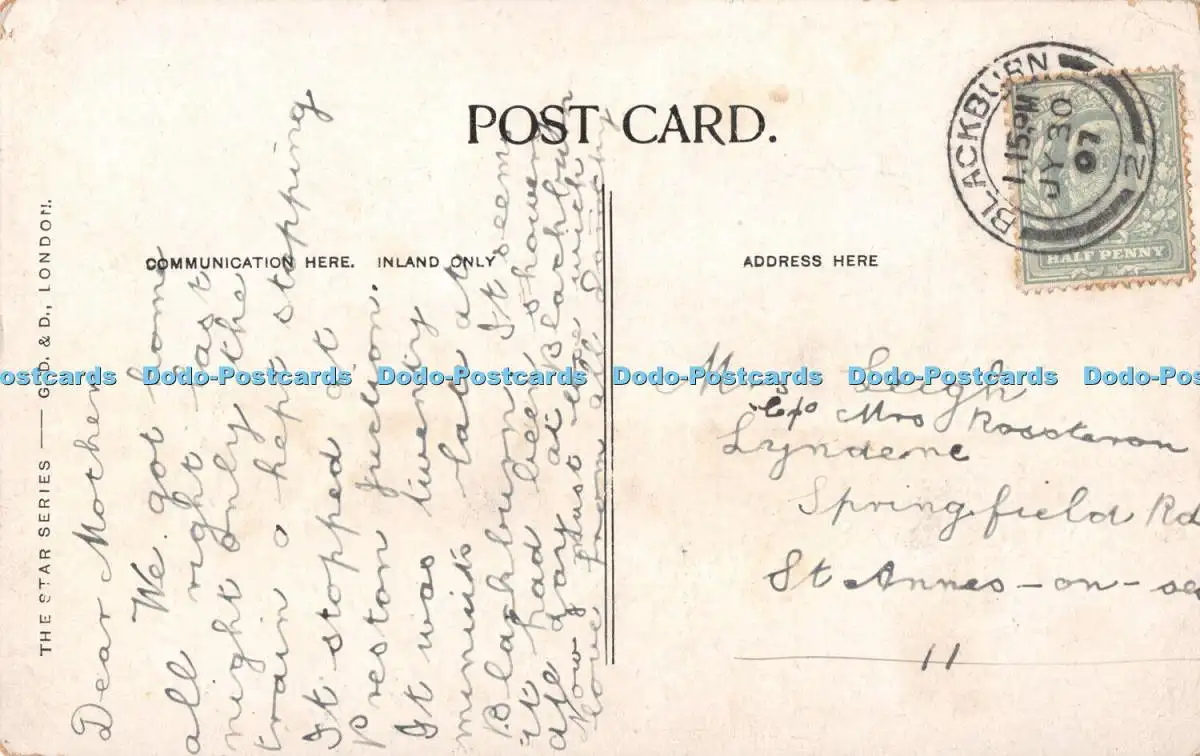 POST CARD.
COMMUNICATION HERE. INLAND ONLY
ADDRESS HERE
THE STAR SERIES — G. D. & D., LONDON.
BLACKBURN
1.15 PM
JY 30
07
2
HALF PENNY
Dear Mother
We got home
all right last
night only the
train o kept stopping
It stopped at
Preston junction.
It was twenty
minuits lat at
Blackburn It seem
it had been showen
all day at Blackburn
Now just
love from all
Mrs Leigh
c/o Mrs
Lyndene
Springfield Rd
St Annes-on-sea
11
Dodo-Postcards Dodo-Postcards Dodo-Postcards Dodo-Postcards Dodo-Postcards